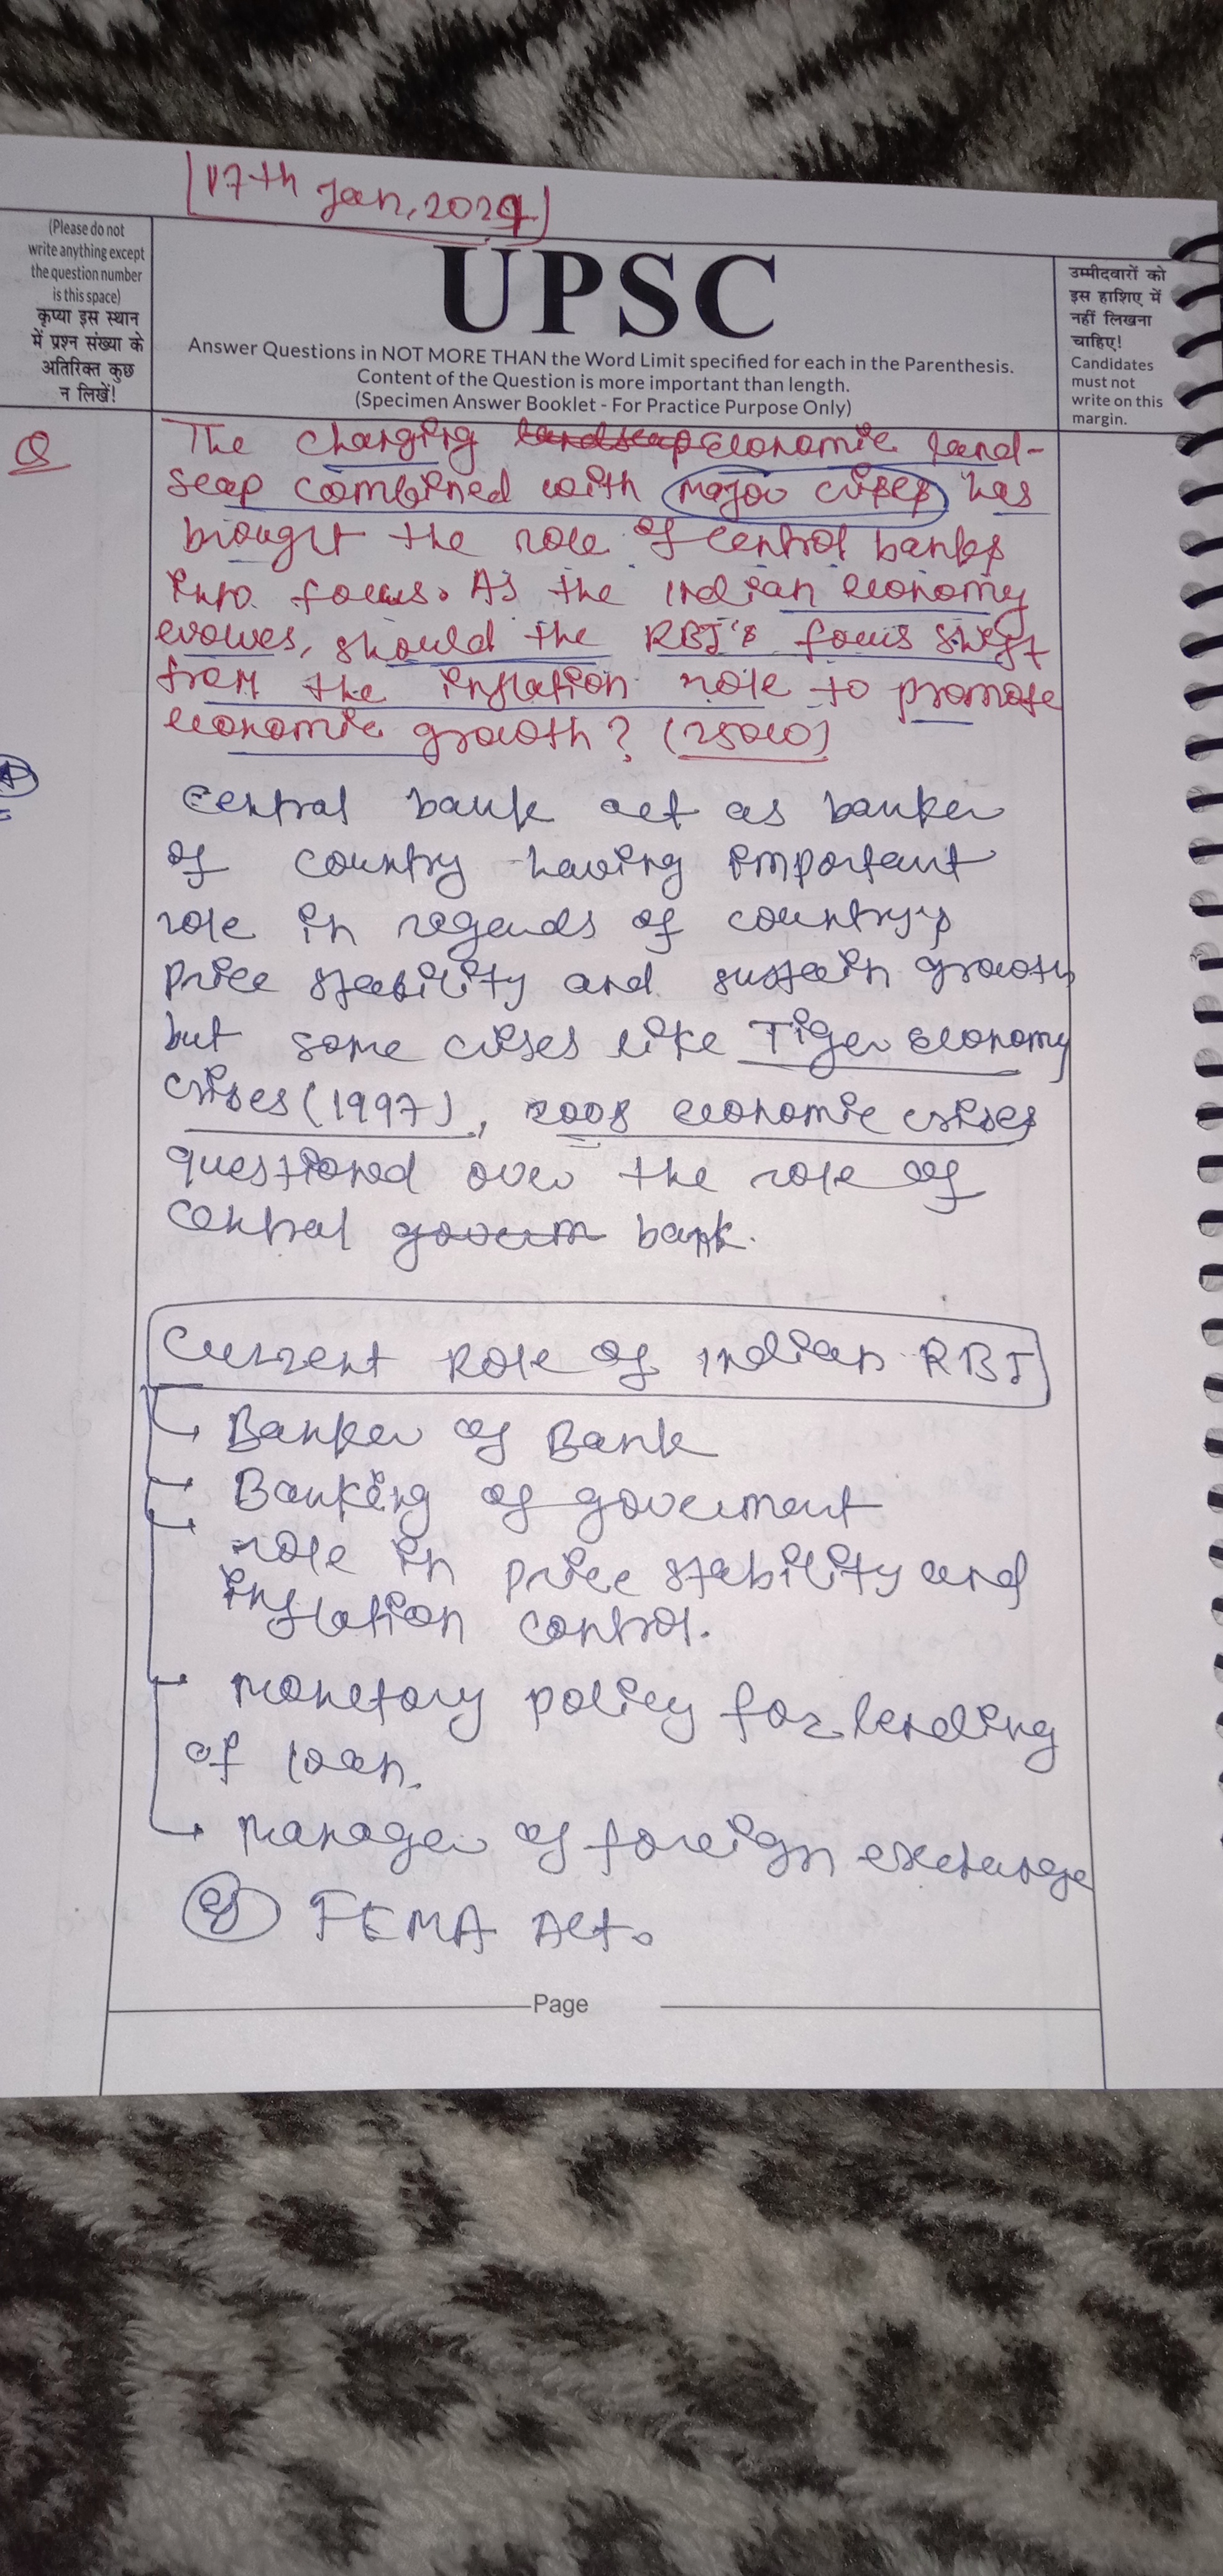 [17th Jan, 2024]
(Please do not
write anything except
the question number
is this space)
कृप्या इस स्थान
में प्रश्न संख्या के
अतिरिक्त कुछ
न लिखें!
UPSC
Answer Questions in NOT MORE THAN the Word Limit specified for each in the Parenthesis.
Content of the Question is more important than length.
(Specimen Answer Booklet - For Practice Purpose Only)
उम्मीदवारों को
इस हाशिए में
नहीं लिखना
चाहिए!
Candidates
must not
write on this
margin.
Q
The changing landscap economic land-
scap combined with major crises has
brought the role of central banks
into focus. As the Indian economy
evolves, should the RBI's focus shift
from the inflation role to promote
economic growth? (250w)
Central bank act as banker
of country having important
role in regards of country's
price stability and sustain growth
but some crises like Tiger economy
crises (1997), 2008 economic crises
questioned over the role of
central govern bank.
Current Role of Indian RBI
Banker of Bank
Banking of government
role in price stability and
inflation control.
monetary policy for lending
of loan.
manager of foreign exchange
eg FEMA Act.
Page